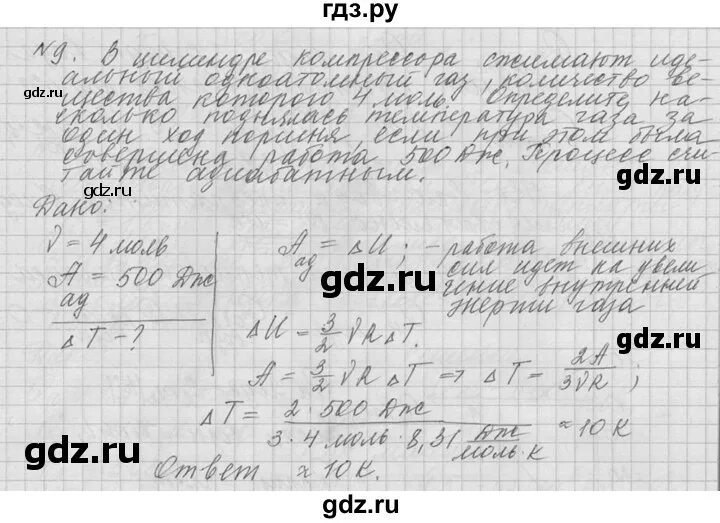 гдз.ру
№9. В цилиндре компрессора сжимают иде-
альный одноатомный газ, количество ве-
щества которого 4 моль. Определите, на-
сколько поднялась температура газа за
один ход поршня, если при этом была
совершена работа 500 Дж. Процесс счи-
тайте адиабатным.
Дано:
ν = 4 моль
Aад = 500 Дж
ΔT - ?
Aад = ΔU; - работа внешних
сил идет на увели-
чение внутренней
энергии газа
ΔU = 3/2 νRΔT.
A = 3/2 νRΔT => ΔT = 2A/3νR ;
ΔT = 2·500 Дж / 3·4 моль·8,31 Дж/моль·К ≈ 10 К
Ответ ≈ 10К.
gdz.ru
gdz.ru
gdz.ru
gdz.ru
gdz.ru
gdz.ru
gdz.ru
gdz.ru
гдз.ру